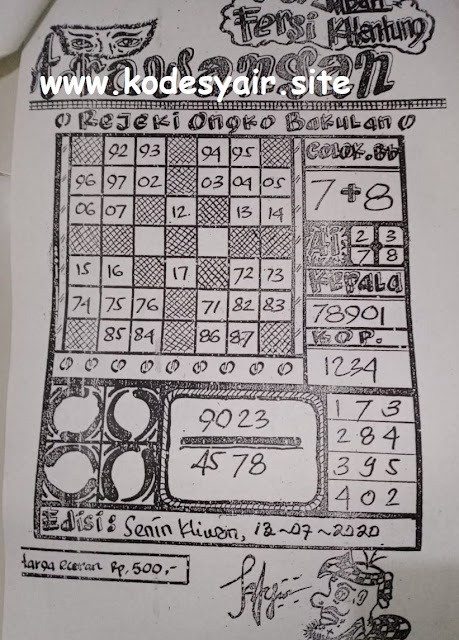 MBAH
Fersi KHentung
Erawangan
www.kodesyair.site
Rejeki Ongko Bakulan
92 93 94 95
COLOK.Bt
96 97 02 03 04 05
7+8
06 07 12. 13 14
Ai: 2 3
7 8
15 16 17 72 73
KEPALA
74 75 76 71 82 83
78901
85 84 86 87
KOP.
1234
9023
4578
173
284
395
402
Edisi: Senin Kliwon, 13~07~2020
Harga Eceran Rp. 500,-